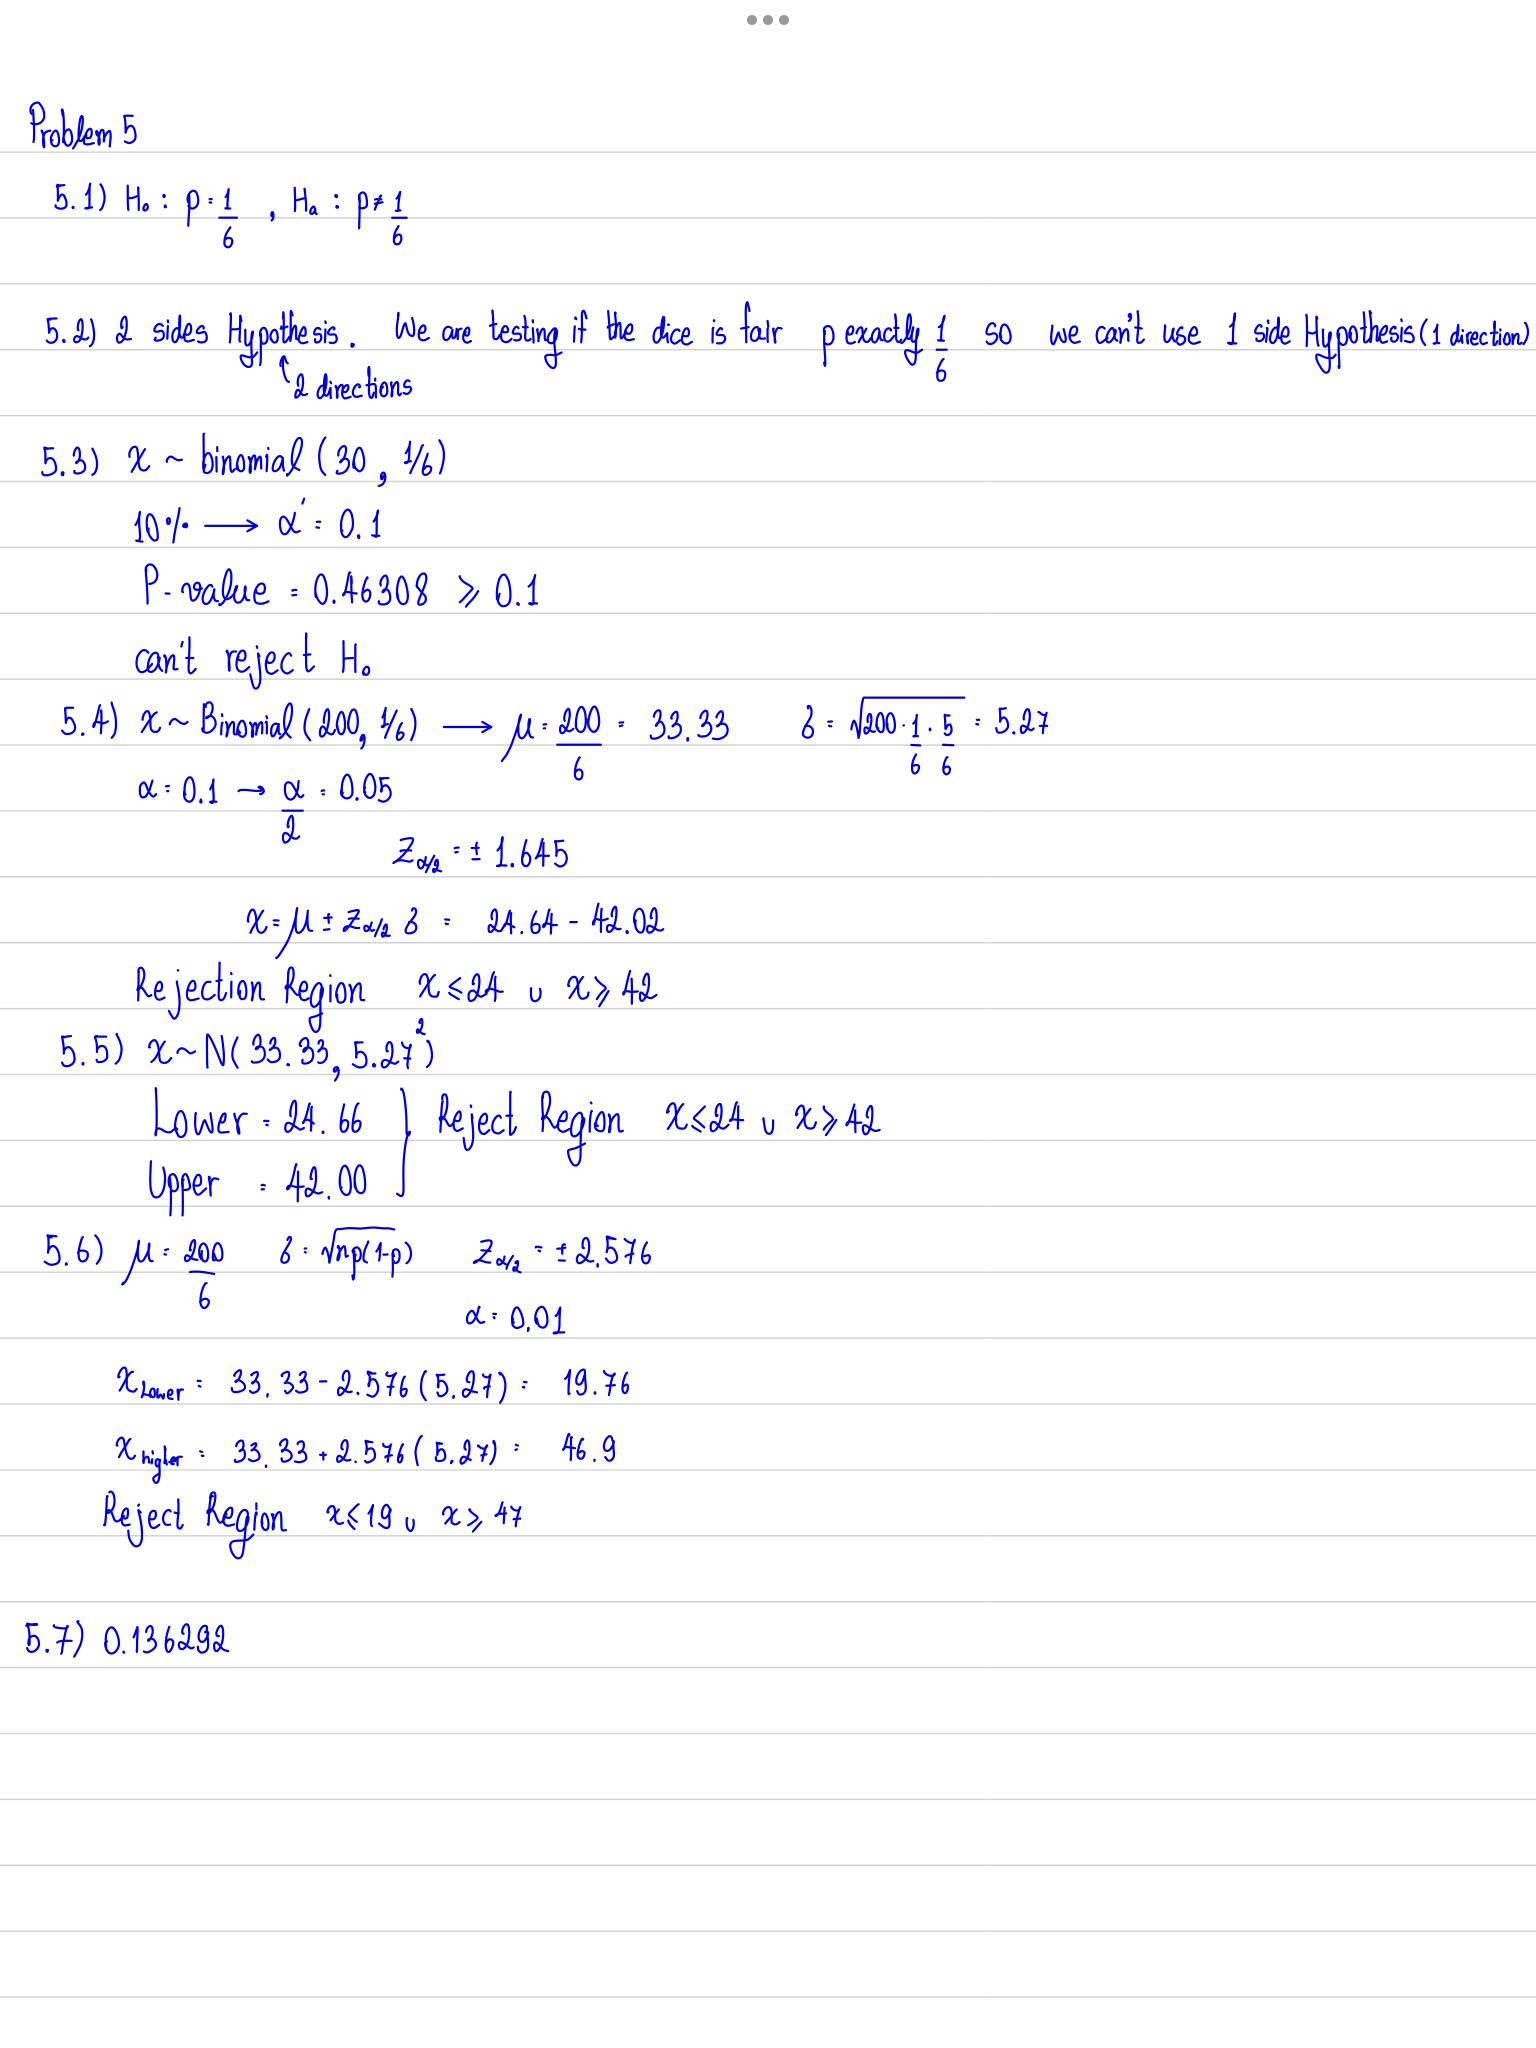 Problem 5
5.1) H₀ : p = 1/6 , Hₐ : p ≠ 1/6
5.2) 2 sides Hypothesis. We are testing if the dice is fair p exactly 1/6 so we can't use 1 side Hypothesis (1 direction)
2 directions
5.3) x ~ binomial (30, 1/6)
10% → α' = 0.1
P-value = 0.46308 ⩾ 0.1
can't reject H₀
5.4) x ~ Binomial (200, 1/6) → μ = 200/6 = 33.33 δ = √(200 · 1/6 · 5/6) = 5.27
α = 0.1 → α/2 = 0.05
Z α/2 = ± 1.645
x = μ ± z α/2 δ = 24.64 - 42.02
Rejection Region x ⩽ 24 ∪ x ⩾ 42
5.5) x ~ N( 33.33, 5.27²)
Lower = 24.66 } Reject Region x ⩽ 24 ∪ x ⩾ 42
Upper = 42.00
5.6) μ = 200/6 δ = √np(1-p) Z α/2 = ± 2.576
α = 0.01
x Lower = 33.33 - 2.576 (5.27) = 19.76
x higher = 33.33 + 2.576 (5.27) = 46.9
Reject Region x ⩽ 19 ∪ x ⩾ 47
5.7) 0.136292